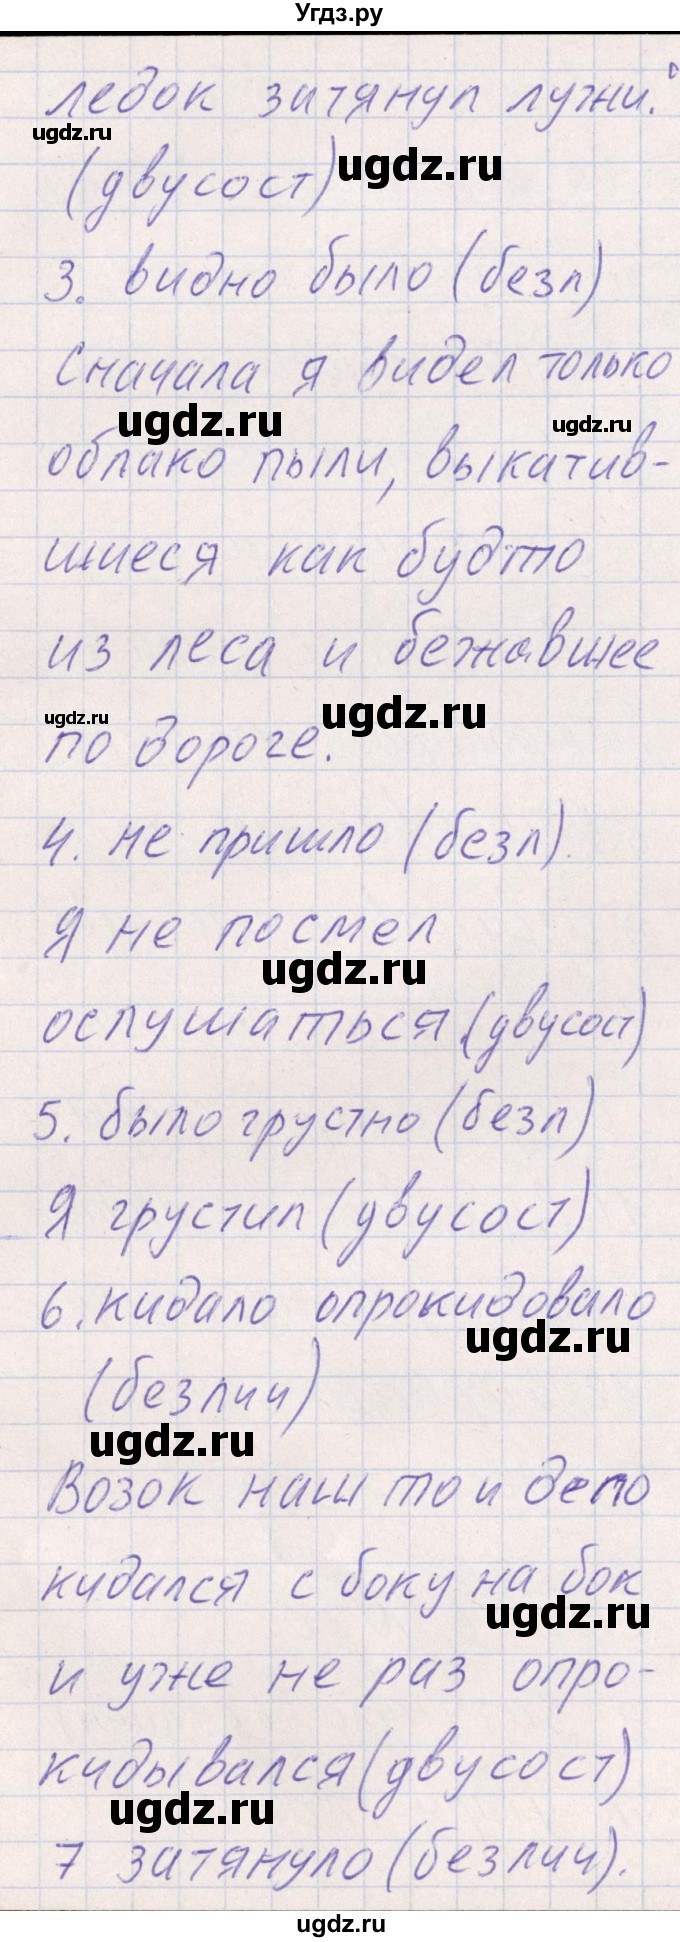 Угдз.ру
ледок затянул лужи.
ugdz.ru
(двусост)
ugdz.ru
3. видно было (безл)
Сначала я видел только
ugdz.ru
ugdz.ru
облако пыли, выкатив-
шиеся как будто
из леса и бежавшее
ugdz.ru
ugdz.ru
по дороге.
4. не пришло (безл).
Я не посмел
ugdz.ru
ослушаться.(двусост)
5. было грустно (безл)
Я грустил (двусост)
6. кидало опрокидовало
ugdz.ru
(безлич)
ugdz.ru
Возок наш то и дело
кидался с боку на бок
ugdz.ru
и уже не раз опро-
кидывался (двусост)
ugdz.ru
7 затянуло (безлич).
ugdz.ru